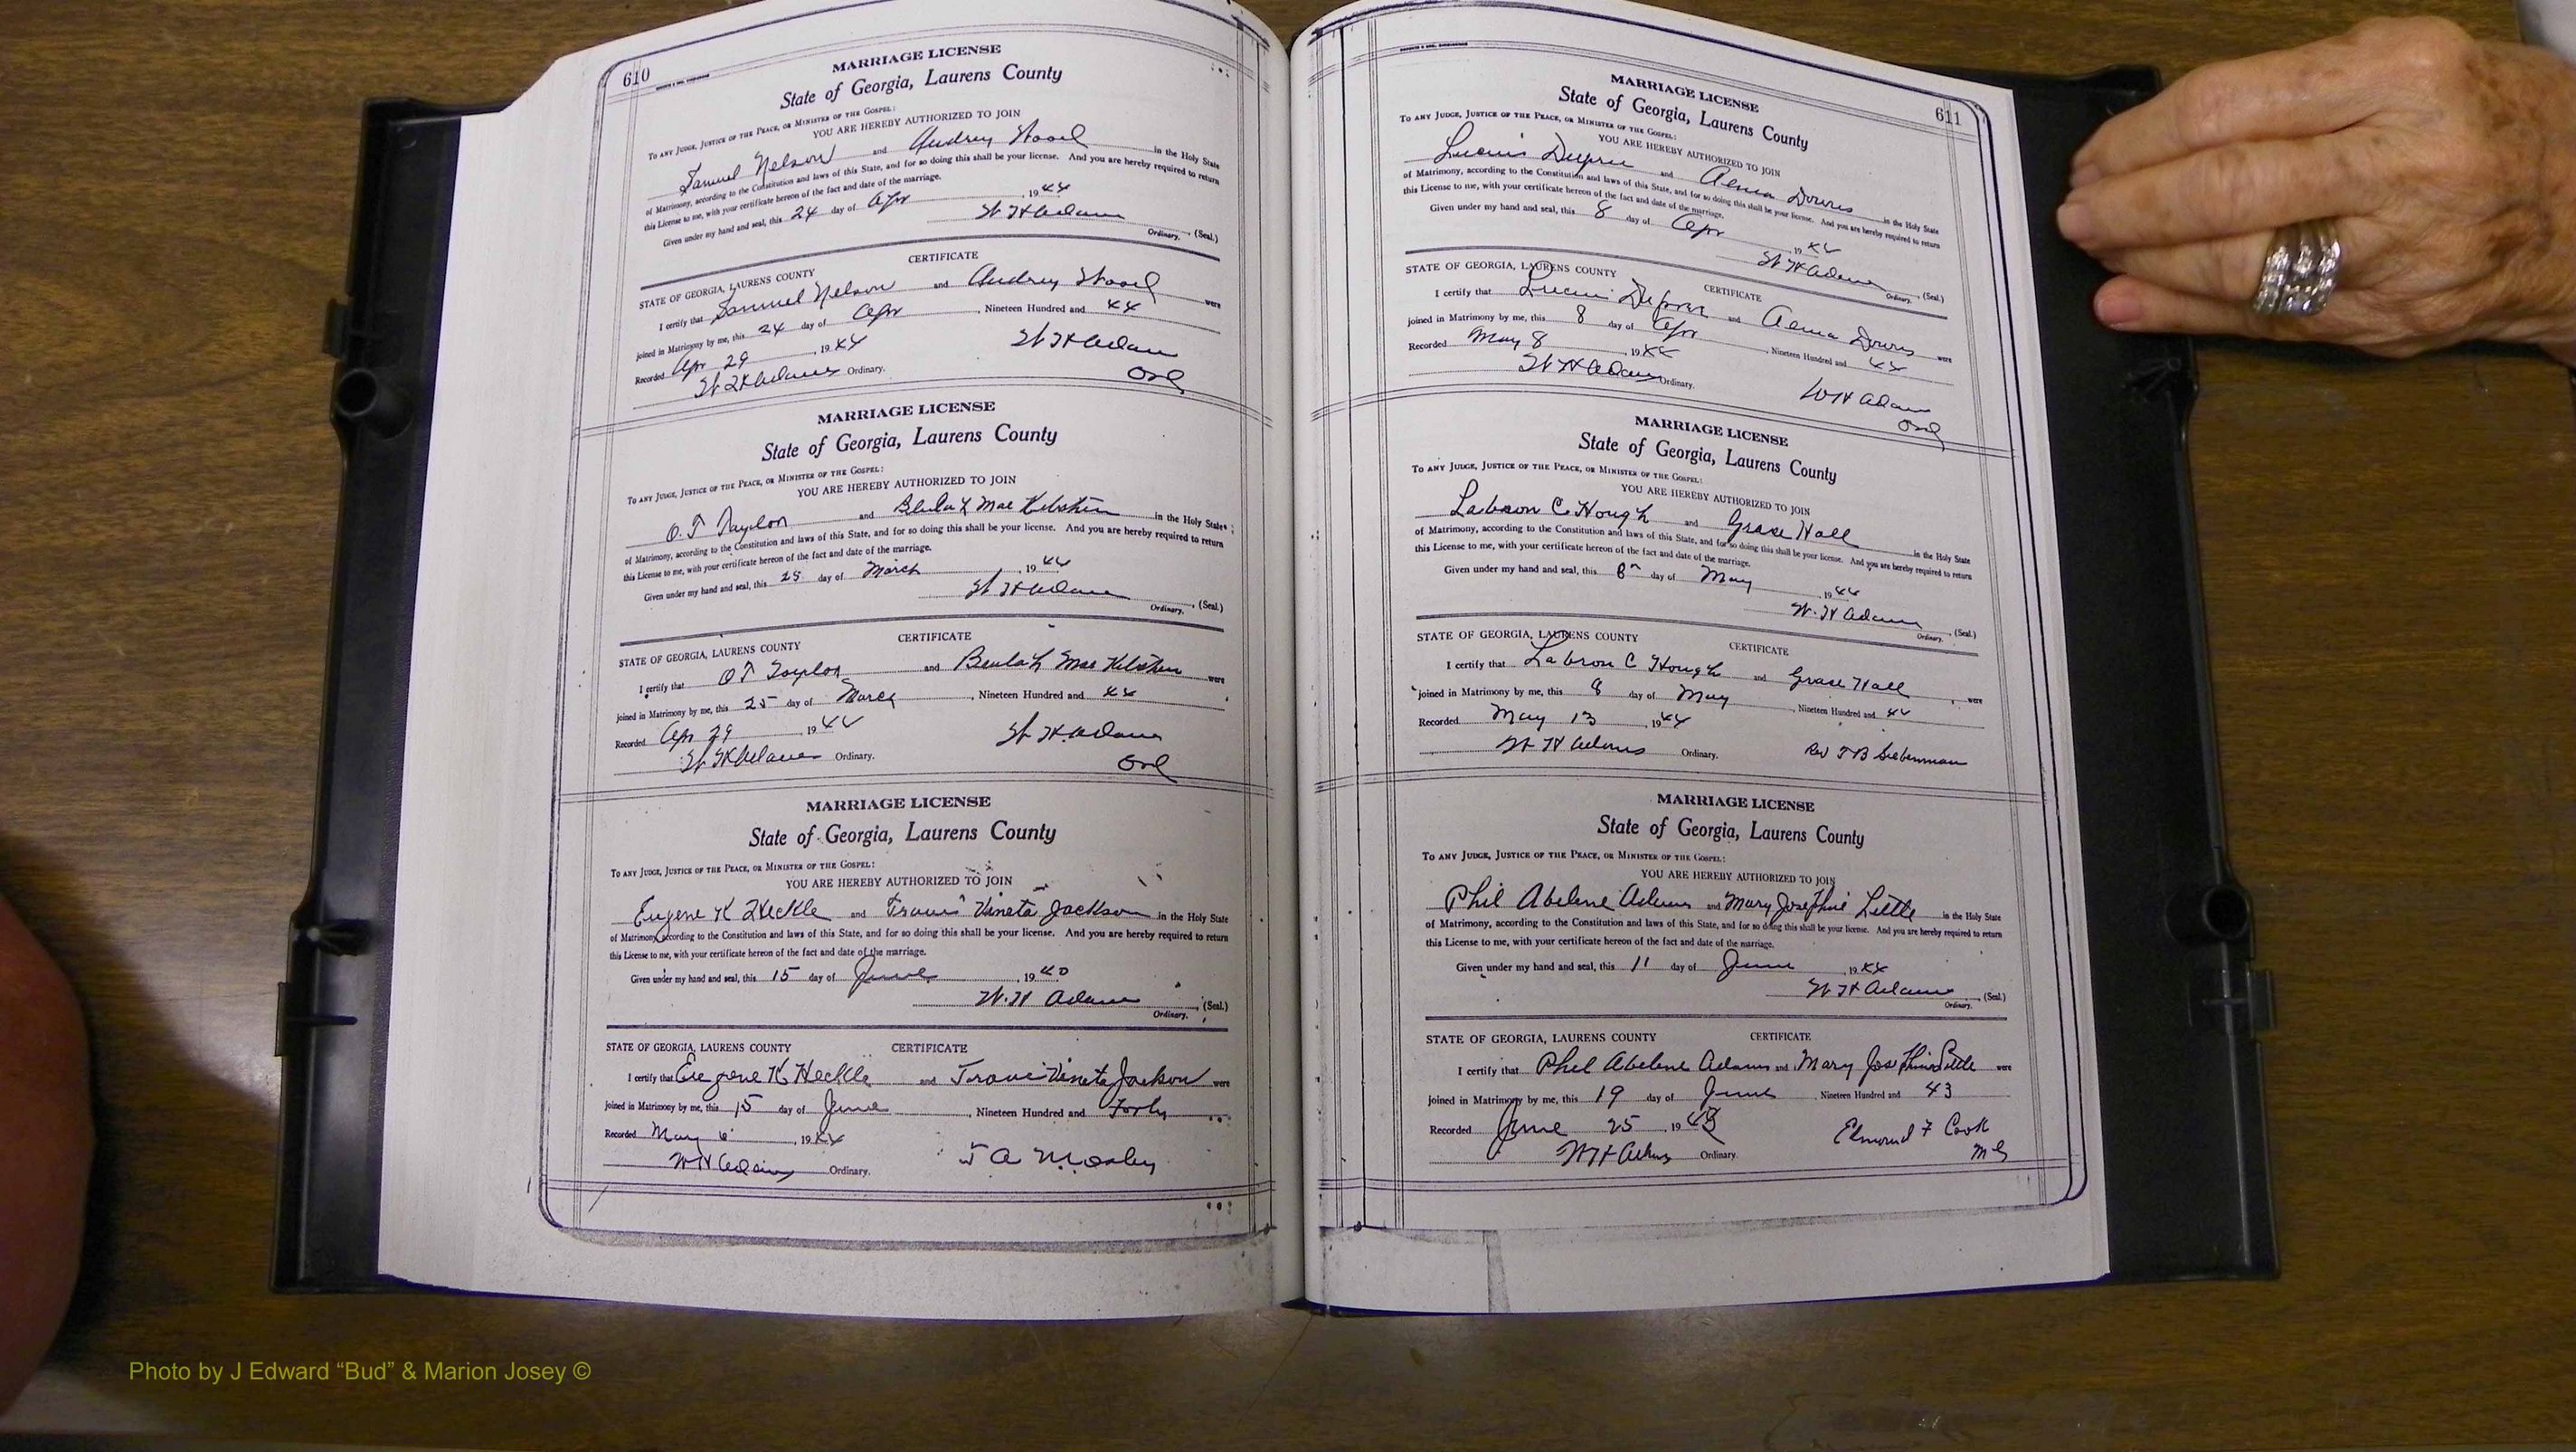 610
MARRIAGE LICENSE
State of Georgia, Laurens County
To any Judge, Justice of the Peace, or Minister of the Gospel:
YOU ARE HEREBY AUTHORIZED TO JOIN
Samuel Nelson and Audrey in the Holy State
of Matrimony, according to the Constitution and laws of this State, and for so doing this shall be your license. And you are hereby required to return
this License to me, with your certificate hereon of the fact and date of the marriage.
Given under my hand and seal, this 24 day of Apr, 1944
W H Adams, (Seal.)
Ordinary.
CERTIFICATE
STATE OF GEORGIA, LAURENS COUNTY
I certify that Samuel Nelson and Audrey were
joined in Matrimony by me, this 24 day of Apr, Nineteen Hundred and 44
Recorded Apr 29, 1944
W H Adams Ordinary.
W H Adams
Ord
MARRIAGE LICENSE
State of Georgia, Laurens County
To any Judge, Justice of the Peace, or Minister of the Gospel:
YOU ARE HEREBY AUTHORIZED TO JOIN
O.T Taylor and Beulah Mae in the Holy State
of Matrimony, according to the Constitution and laws of this State, and for so doing this shall be your license. And you are hereby required to return
this License to me, with your certificate hereon of the fact and date of the marriage.
Given under my hand and seal, this 25 day of March, 1944
W H Adams, (Seal.)
Ordinary.
CERTIFICATE
STATE OF GEORGIA, LAURENS COUNTY
I certify that O T Taylor and Beulah Mae were
joined in Matrimony by me, this 25 day of March, Nineteen Hundred and 44
Recorded Apr 29, 1944
W H Adams Ordinary.
W H. Adams
Ord
MARRIAGE LICENSE
State of Georgia, Laurens County
To any Judge, Justice of the Peace, or Minister of the Gospel:
YOU ARE HEREBY AUTHORIZED TO JOIN
Eugene K Heckle and Vineta Jackson in the Holy State
of Matrimony, according to the Constitution and laws of this State, and for so doing this shall be your license. And you are hereby required to return
this License to me, with your certificate hereon of the fact and date of the marriage.
Given under my hand and seal, this 15 day of June, 1940
W. H Adams, (Seal.)
Ordinary.
STATE OF GEORGIA, LAURENS COUNTY CERTIFICATE
I certify that Eugene K Heckle and Vineta Jackson were
joined in Matrimony by me, this 15 day of June, Nineteen Hundred and Forty
Recorded May 6, 1944
W H Adams Ordinary.
J A Mosley
611
MARRIAGE LICENSE
State of Georgia, Laurens County
To any Judge, Justice of the Peace, or Minister of the Gospel:
YOU ARE HEREBY AUTHORIZED TO JOIN
Dupree and in the Holy State
of Matrimony, according to the Constitution and laws of this State, and for so doing this shall be your license. And you are hereby required to return
this License to me, with your certificate hereon of the fact and date of the marriage.
Given under my hand and seal, this 8 day of Apr 1944
W H Adams, (Seal.)
Ordinary.
STATE OF GEORGIA, LAURENS COUNTY CERTIFICATE
I certify that and were
joined in Matrimony by me, this 8 day of Apr, Nineteen Hundred and 44
Recorded May 8, 1944
W H Adams Ordinary.
W H Adams
Ord
MARRIAGE LICENSE
State of Georgia, Laurens County
To any Judge, Justice of the Peace, or Minister of the Gospel:
YOU ARE HEREBY AUTHORIZED TO JOIN
Labron C Hough and Grace Hall in the Holy State
of Matrimony, according to the Constitution and laws of this State, and for so doing this shall be your license. And you are hereby required to return
this License to me, with your certificate hereon of the fact and date of the marriage.
Given under my hand and seal, this 8 day of May, 1944
W. H Adams, (Seal.)
Ordinary.
STATE OF GEORGIA, LAURENS COUNTY CERTIFICATE
I certify that Labron C Hough and Grace Hall were
joined in Matrimony by me, this 8 day of May, Nineteen Hundred and 44
Recorded May 13, 1944
W H Adams Ordinary.
Rev
MARRIAGE LICENSE
State of Georgia, Laurens County
To any Judge, Justice of the Peace, or Minister of the Gospel:
YOU ARE HEREBY AUTHORIZED TO JOIN
Phil Abelene Adams and Mary Josephine Little in the Holy State
of Matrimony, according to the Constitution and laws of this State, and for so doing this shall be your license. And you are hereby required to return
this License to me, with your certificate hereon of the fact and date of the marriage.
Given under my hand and seal, this 11 day of June, 1944
W H Adams, (Seal.)
Ordinary.
STATE OF GEORGIA, LAURENS COUNTY CERTIFICATE
I certify that Phil Abelene Adams and Mary Josephine Little were
joined in Matrimony by me, this 19 day of June Nineteen Hundred and 43
Recorded June 25, 1943
W H Adams Ordinary.
Elmond F Cook
M G
Photo by J Edward “Bud” & Marion Josey ©